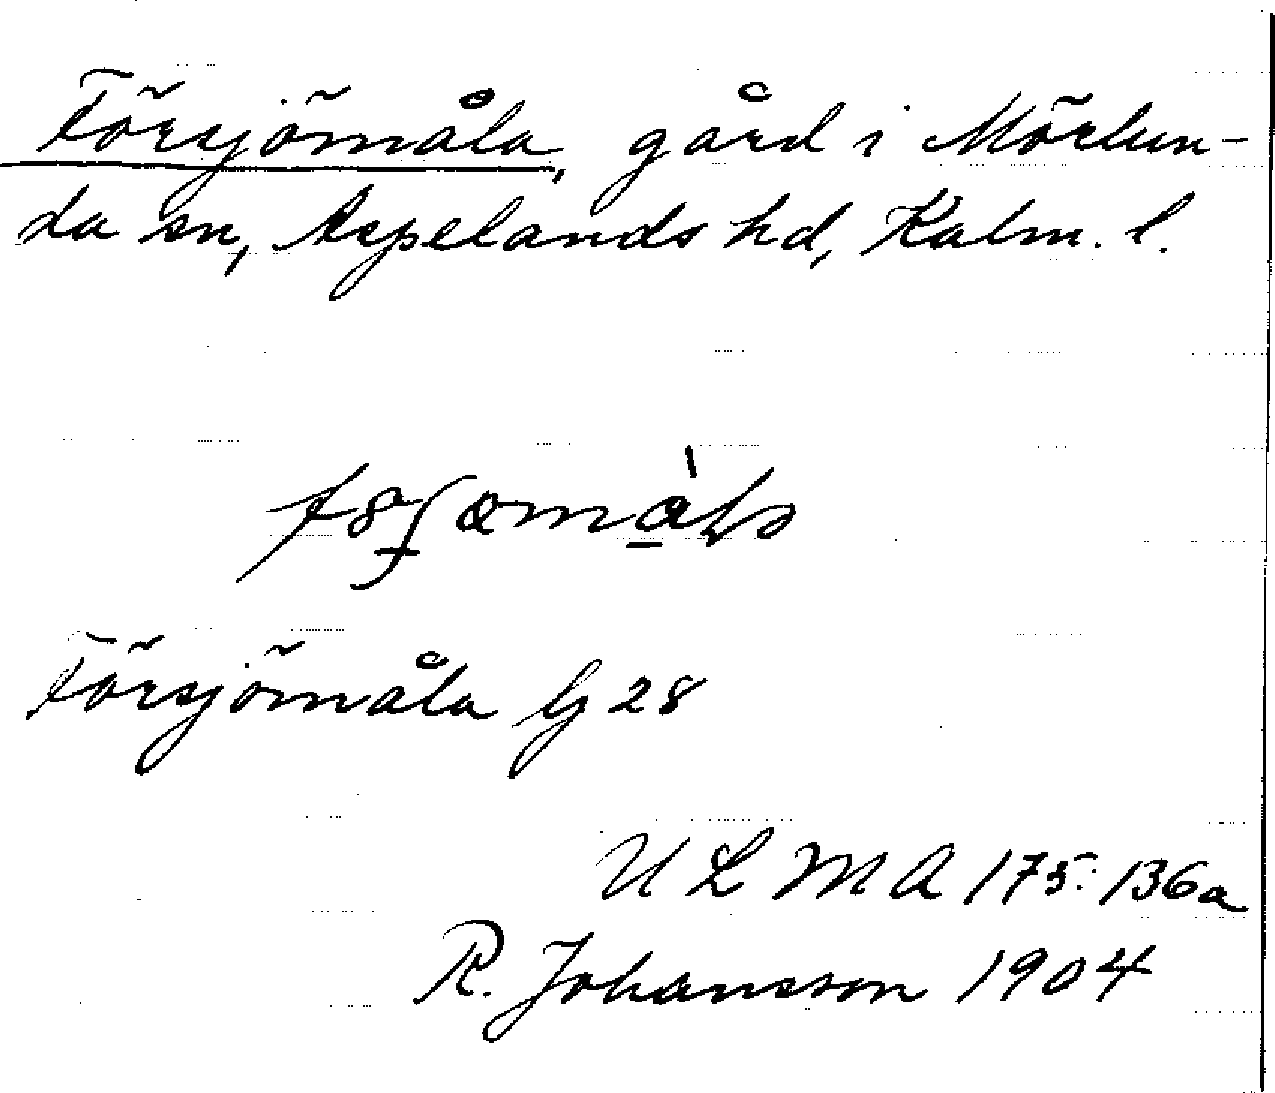 Försjömåla, gård i Mörlun-
da sn, Aspelands hd, Kalm. l.
Försjömåla G 28
U L M A 175:136a
R. Johansson 1904